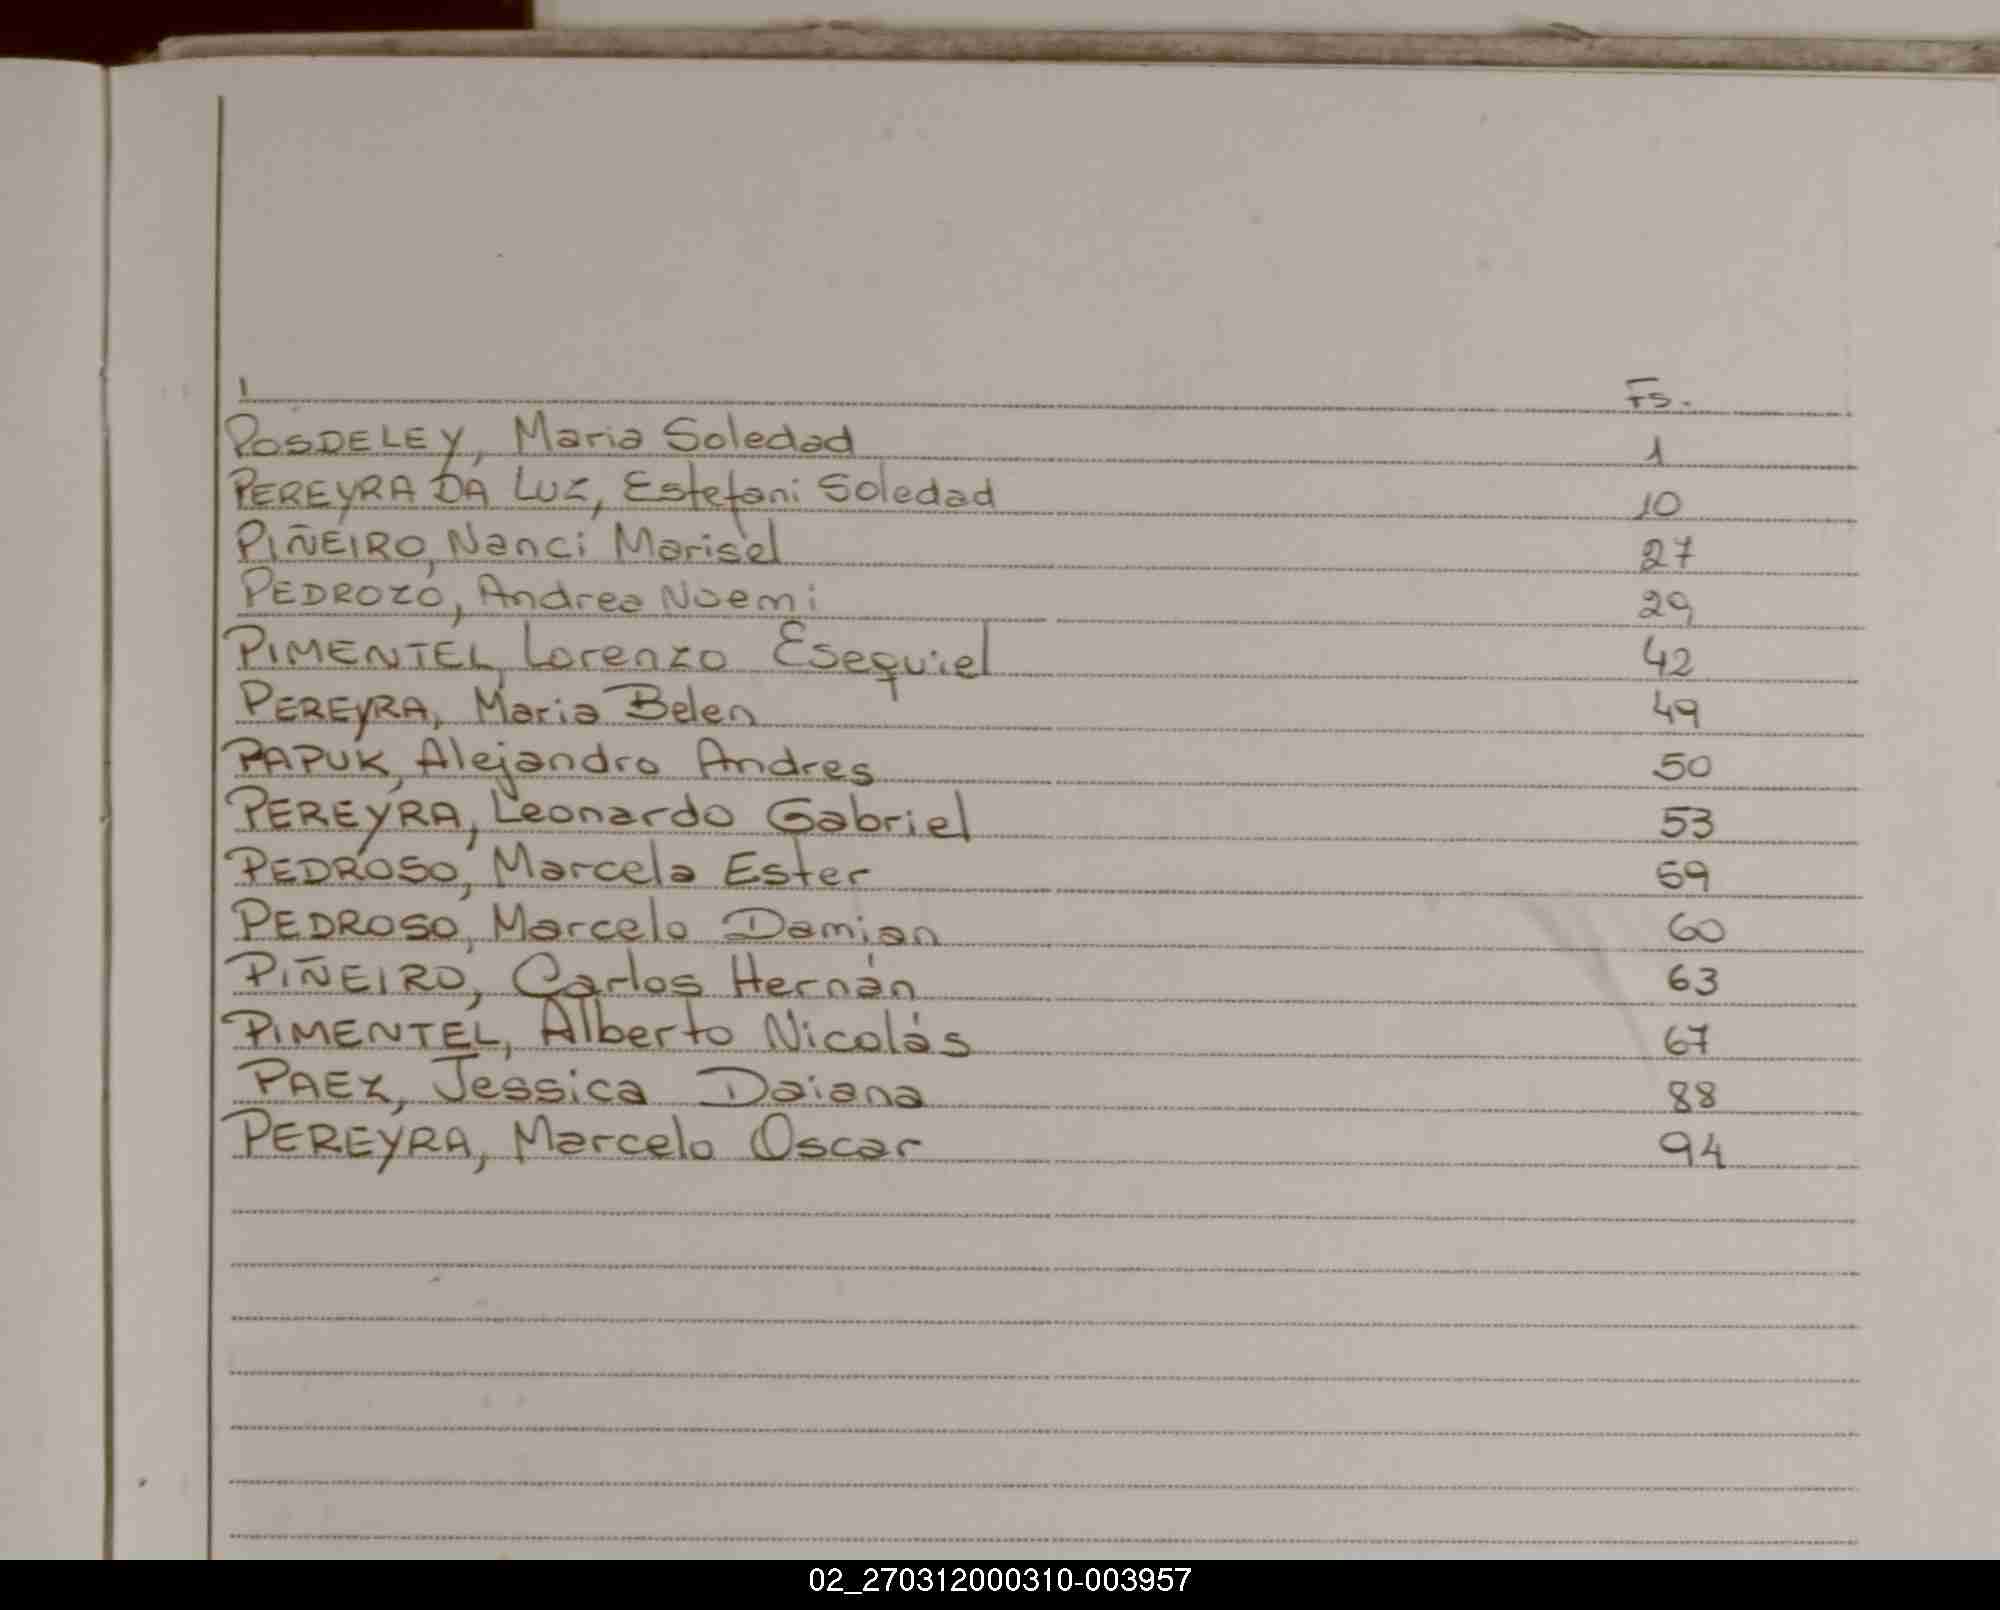 Fs.
POSDELEY, Maria Soledad 1
PEREYRA DA LUZ, Estefani Soledad 10
PIÑEIRO, Nanci Marisel 27
PEDROZO, Andrea Noemi 29
PIMENTEL, Lorenzo Esequiel 42
PEREYRA, Maria Belen 49
PAPUK, Alejandro Andres 50
PEREYRA, Leonardo Gabriel 53
PEDROSO, Marcela Ester 59
PEDROSO, Marcelo Damian 60
PIÑEIRO, Carlos Hernán 63
PIMENTEL, Alberto Nicolás 67
PAEZ, Jessica Daiana 88
PEREYRA, Marcelo Oscar 94
02_270312000310-003957